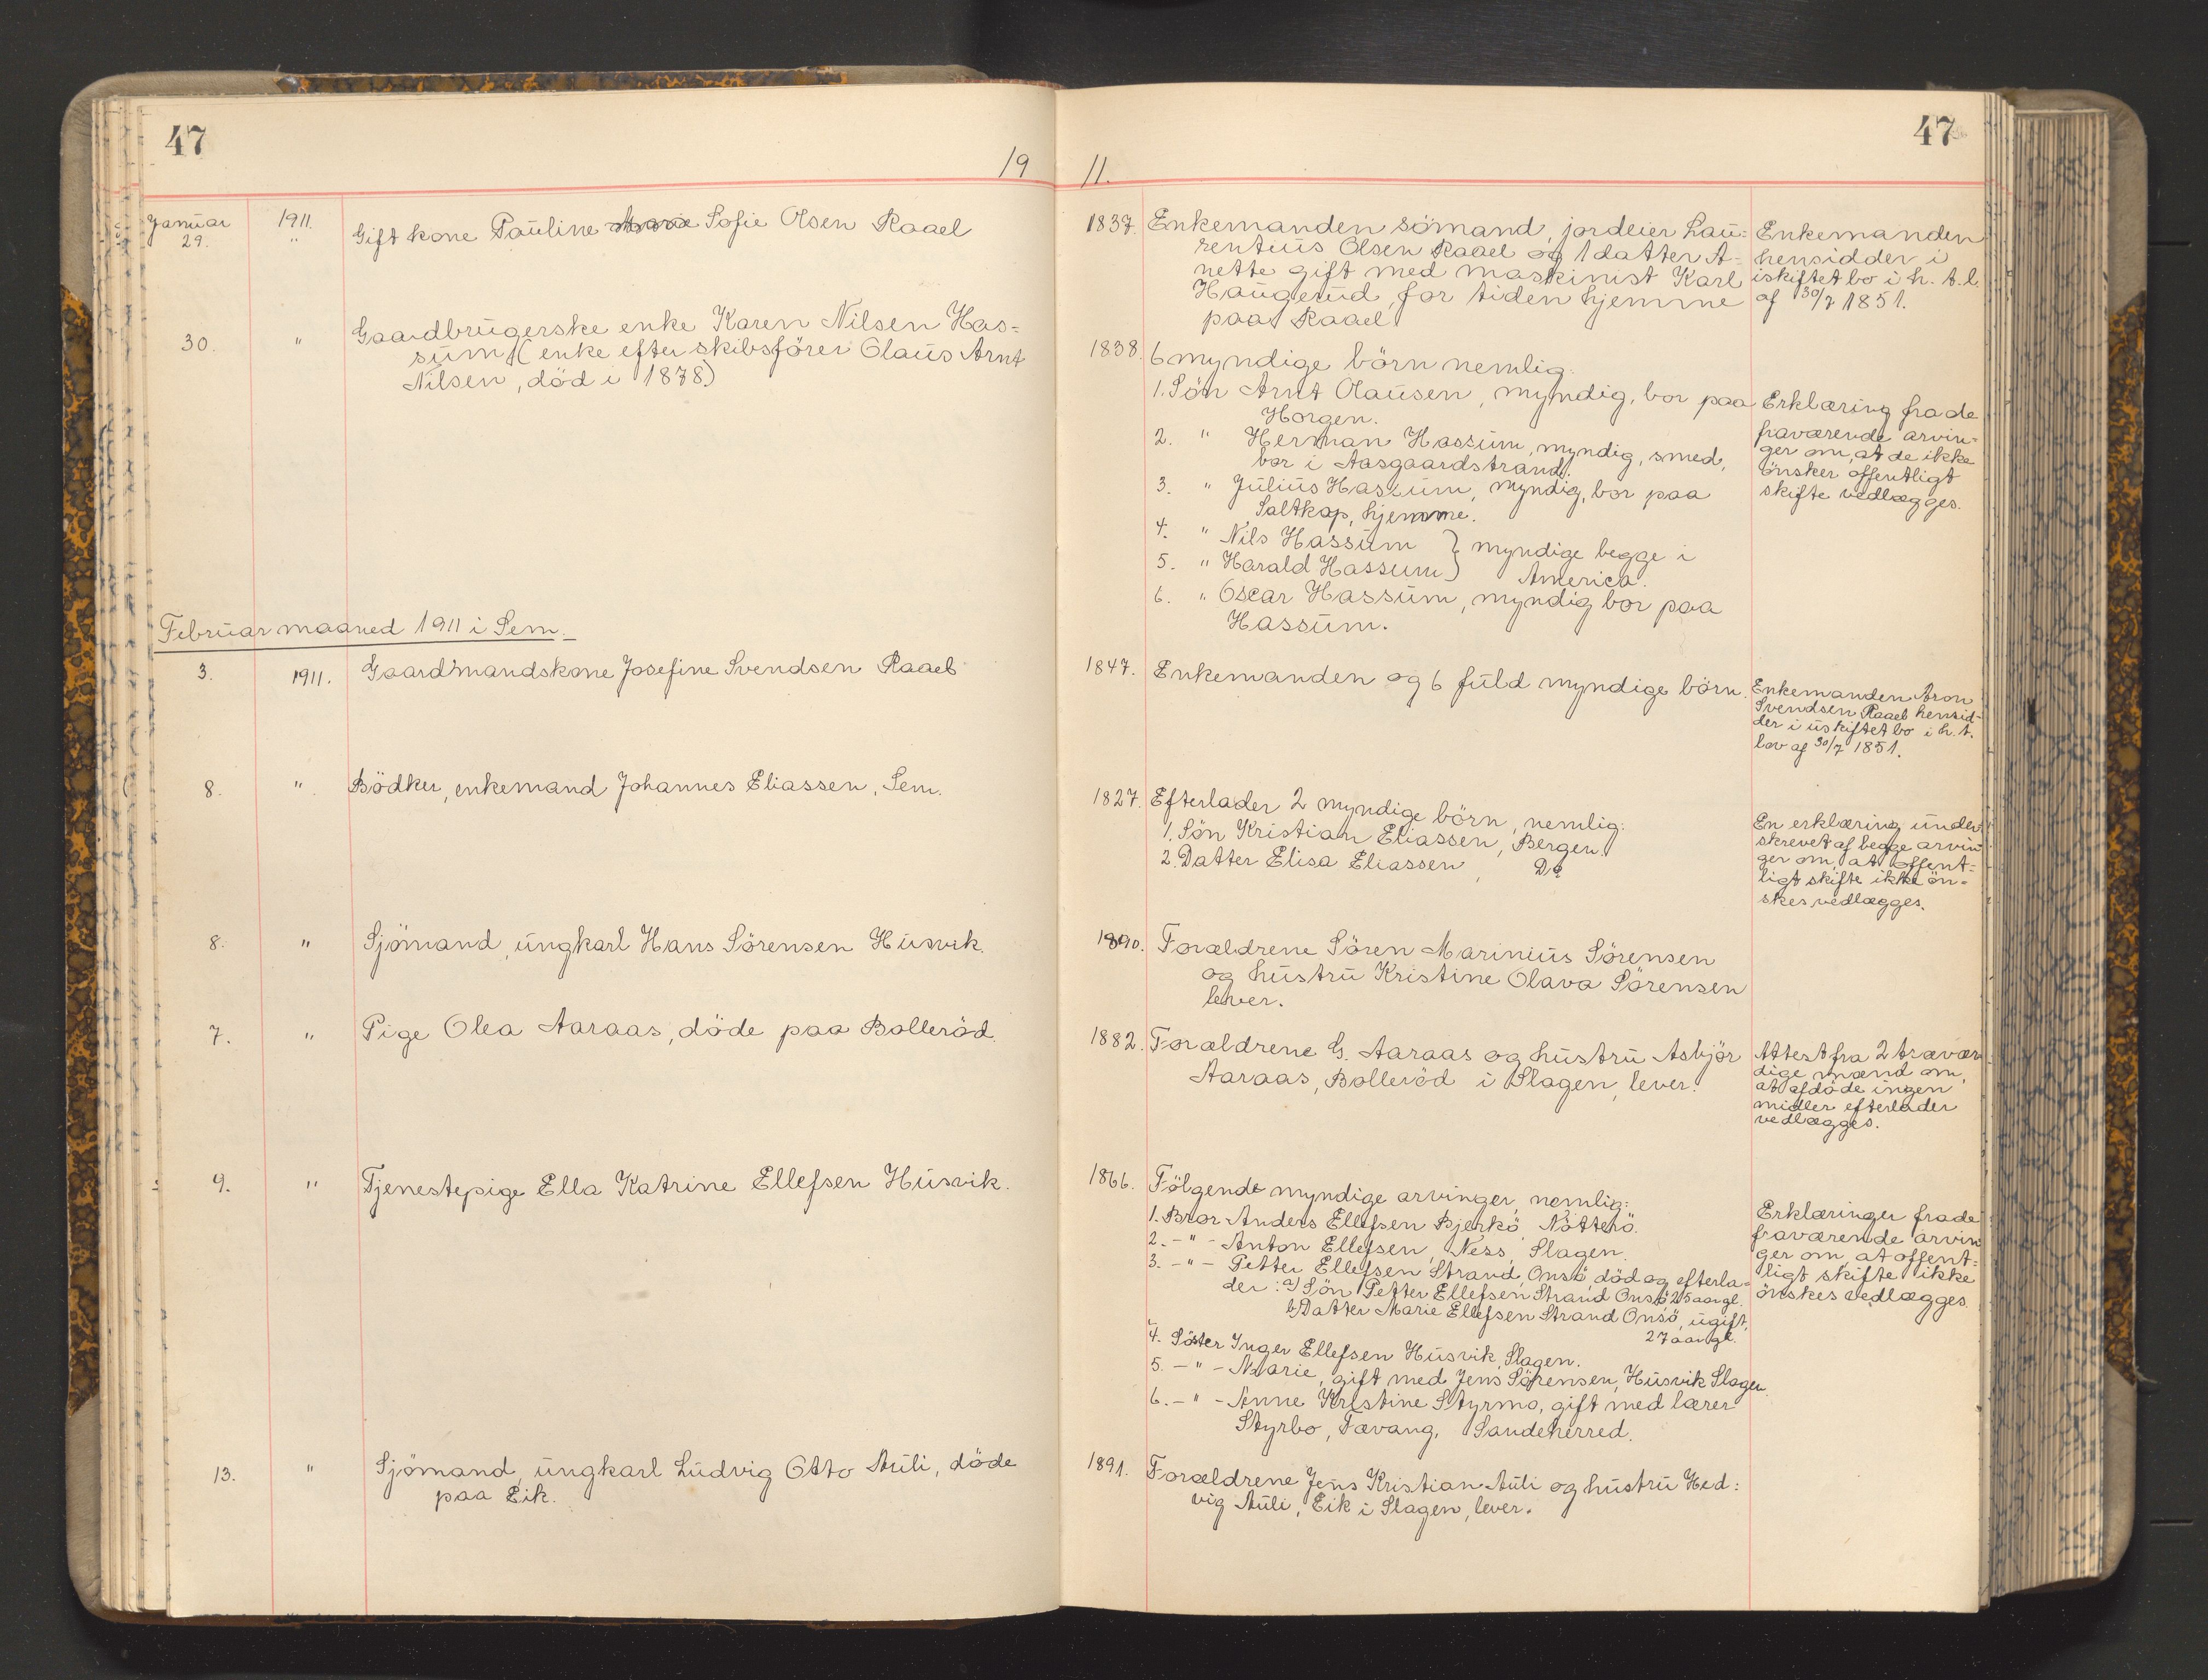 47
19
Januar 1911. Gift kone Pauline Sofie Olsen Raael
29. "
30. " Gaardbrugerske enke Karen Nilsen Has=
sum (enke efter skibsförer Olaus Arnt
Nilsen, död i 1878.)
Februar maaned 1911 i Sem.
3. 1911. Gaardmandskone Josefine Svendsen Raael
8. " Bödker, enkemand Johannes Eliassen, Sem.
8. " Sjömand, ungkarl Hans Sörensen Husvik.
7. " Pige Olea Aaraas, döde paa Bolleröd.
9. " Tjenestepige Ella Katrine Ellefsen Husvik.
13. " Sjömand, ungkarl Ludvig Otto Auli, döde
paa Eik.
47
11.
1837. Enkemanden sömand, jordeier Lau=
rentius Olsen Raael og 1 datter A-
nette gift med maskinist Karl
Haugerud, for tiden hjemme
paa Raael
Enkemanden
hensidder i
iskiftet bo i h. t. l.
af 30/7 1851.
1838. 6 myndige börn nemlig:
1. Sön Arnt Olausen, myndig, bor paa
Horgen.
2. " Herman Hassum, myndig, smed,
bor i Aasgaardstrand.
3. " Julius Hassum, myndig, bor paa
Saltkop, hjemme.
4. " Nils Hassum } myndige begge i
5. " Harald Hassum } America.
6. " Oscar Hassum, myndig bor paa
Hassum.
Erklæring fra de
fraværende arvin=
ger om, at de ikke
önsker offentligt
skifte vedlægges.
1847. Enkemanden og 6 fuld myndige börn.
Enkemanden Aron
Svendsen Raael hensid-
der i uskiftet bo i h. t.
lov af 30/7 1851.
1827. Efterlader 2 myndige börn, nemlig:
1. Sön Kristian Eliassen, Bergen.
2. Datter Elisa Eliassen, Do
En erklæring under
skrevet af begge arvin
ger om, at offent=
ligt skifte ikke ön=
skes vedlægges.
1890. Forældrene Sören Marinius Sörensen
og hustru Kristine Olava Sörensen
lever.
1882. Forældrene G. Aaraas og hustru Asbjör
Aaraas, Bolleröd i Slagen, lever.
Attest fra 2 trovær
dige mænd om,
at afdöde ingen
midler efterlader
vedlægges.
1866. Fölgende myndige arvinger, nemlig:
1. Bror Anders Ellefsen Bjerkö, Nötterö.
2. - " - Anton Ellefsen, Ness, Slagen.
3. - " - Petter Ellefsen Strand, Onsö död og efterla=
der: a) Sön Petter Ellefsen Strand Onsö 25 aar gl.
b) Datter Marie Ellefsen Strand Onsö, ugift,
27 aar gl.
4. Söster Inger Ellefsen Husvik, Slagen.
5. - " - Marie, gift med Jens Sörensen, Husvik Slagen.
6. - " - Anne Kristine Styrmo, gift med lærer
Styrbo, Tævang, Sandeherred.
Erklæringer fra de
fraværende arvin
ger om, at offent=
ligt skifte ikke
önskes vedlægges.
1891. Forældrene Jens Kristian Auli og hustru Hed:
vig Auli, Eik i Slagen, lever.